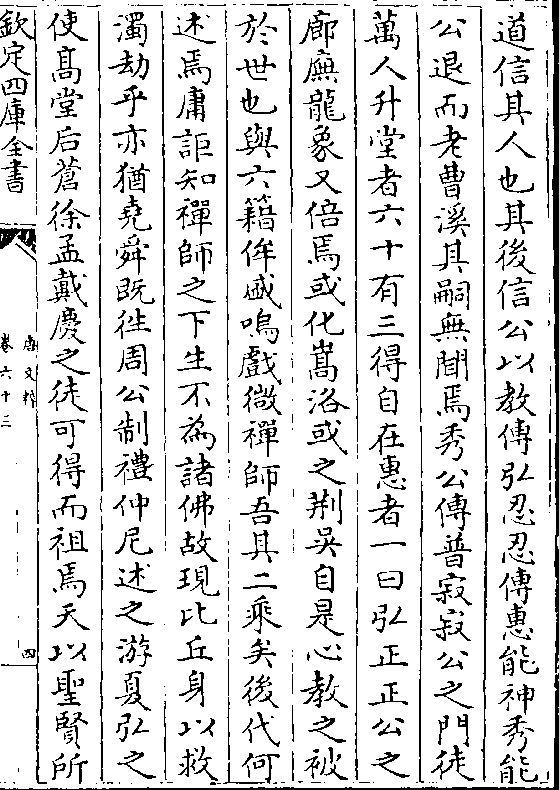 道信其人也其後信公以教傳弘忍忍傳惠能神秀能
公退而老曹溪其嗣無聞焉秀公傳普寂寂公之門徒
萬人升堂者六十有三得自在惠者一曰弘正正公之
廊廡龍象又倍焉或化嵩洛或之荆吳自是心教之被
於世也與六籍侔盛嗚戲微禪師吾其二乘矣後代何
述焉庸詎知禪師之下生不為諸佛故現比丘身以救
濁劫乎亦猶堯舜既往周公制禮仲尼述之游夏弘之
使髙堂后蒼徐孟戴慶之徒可得而祖焉天以聖賢所
欽定四庫全書
唐文粹
卷六十三
四